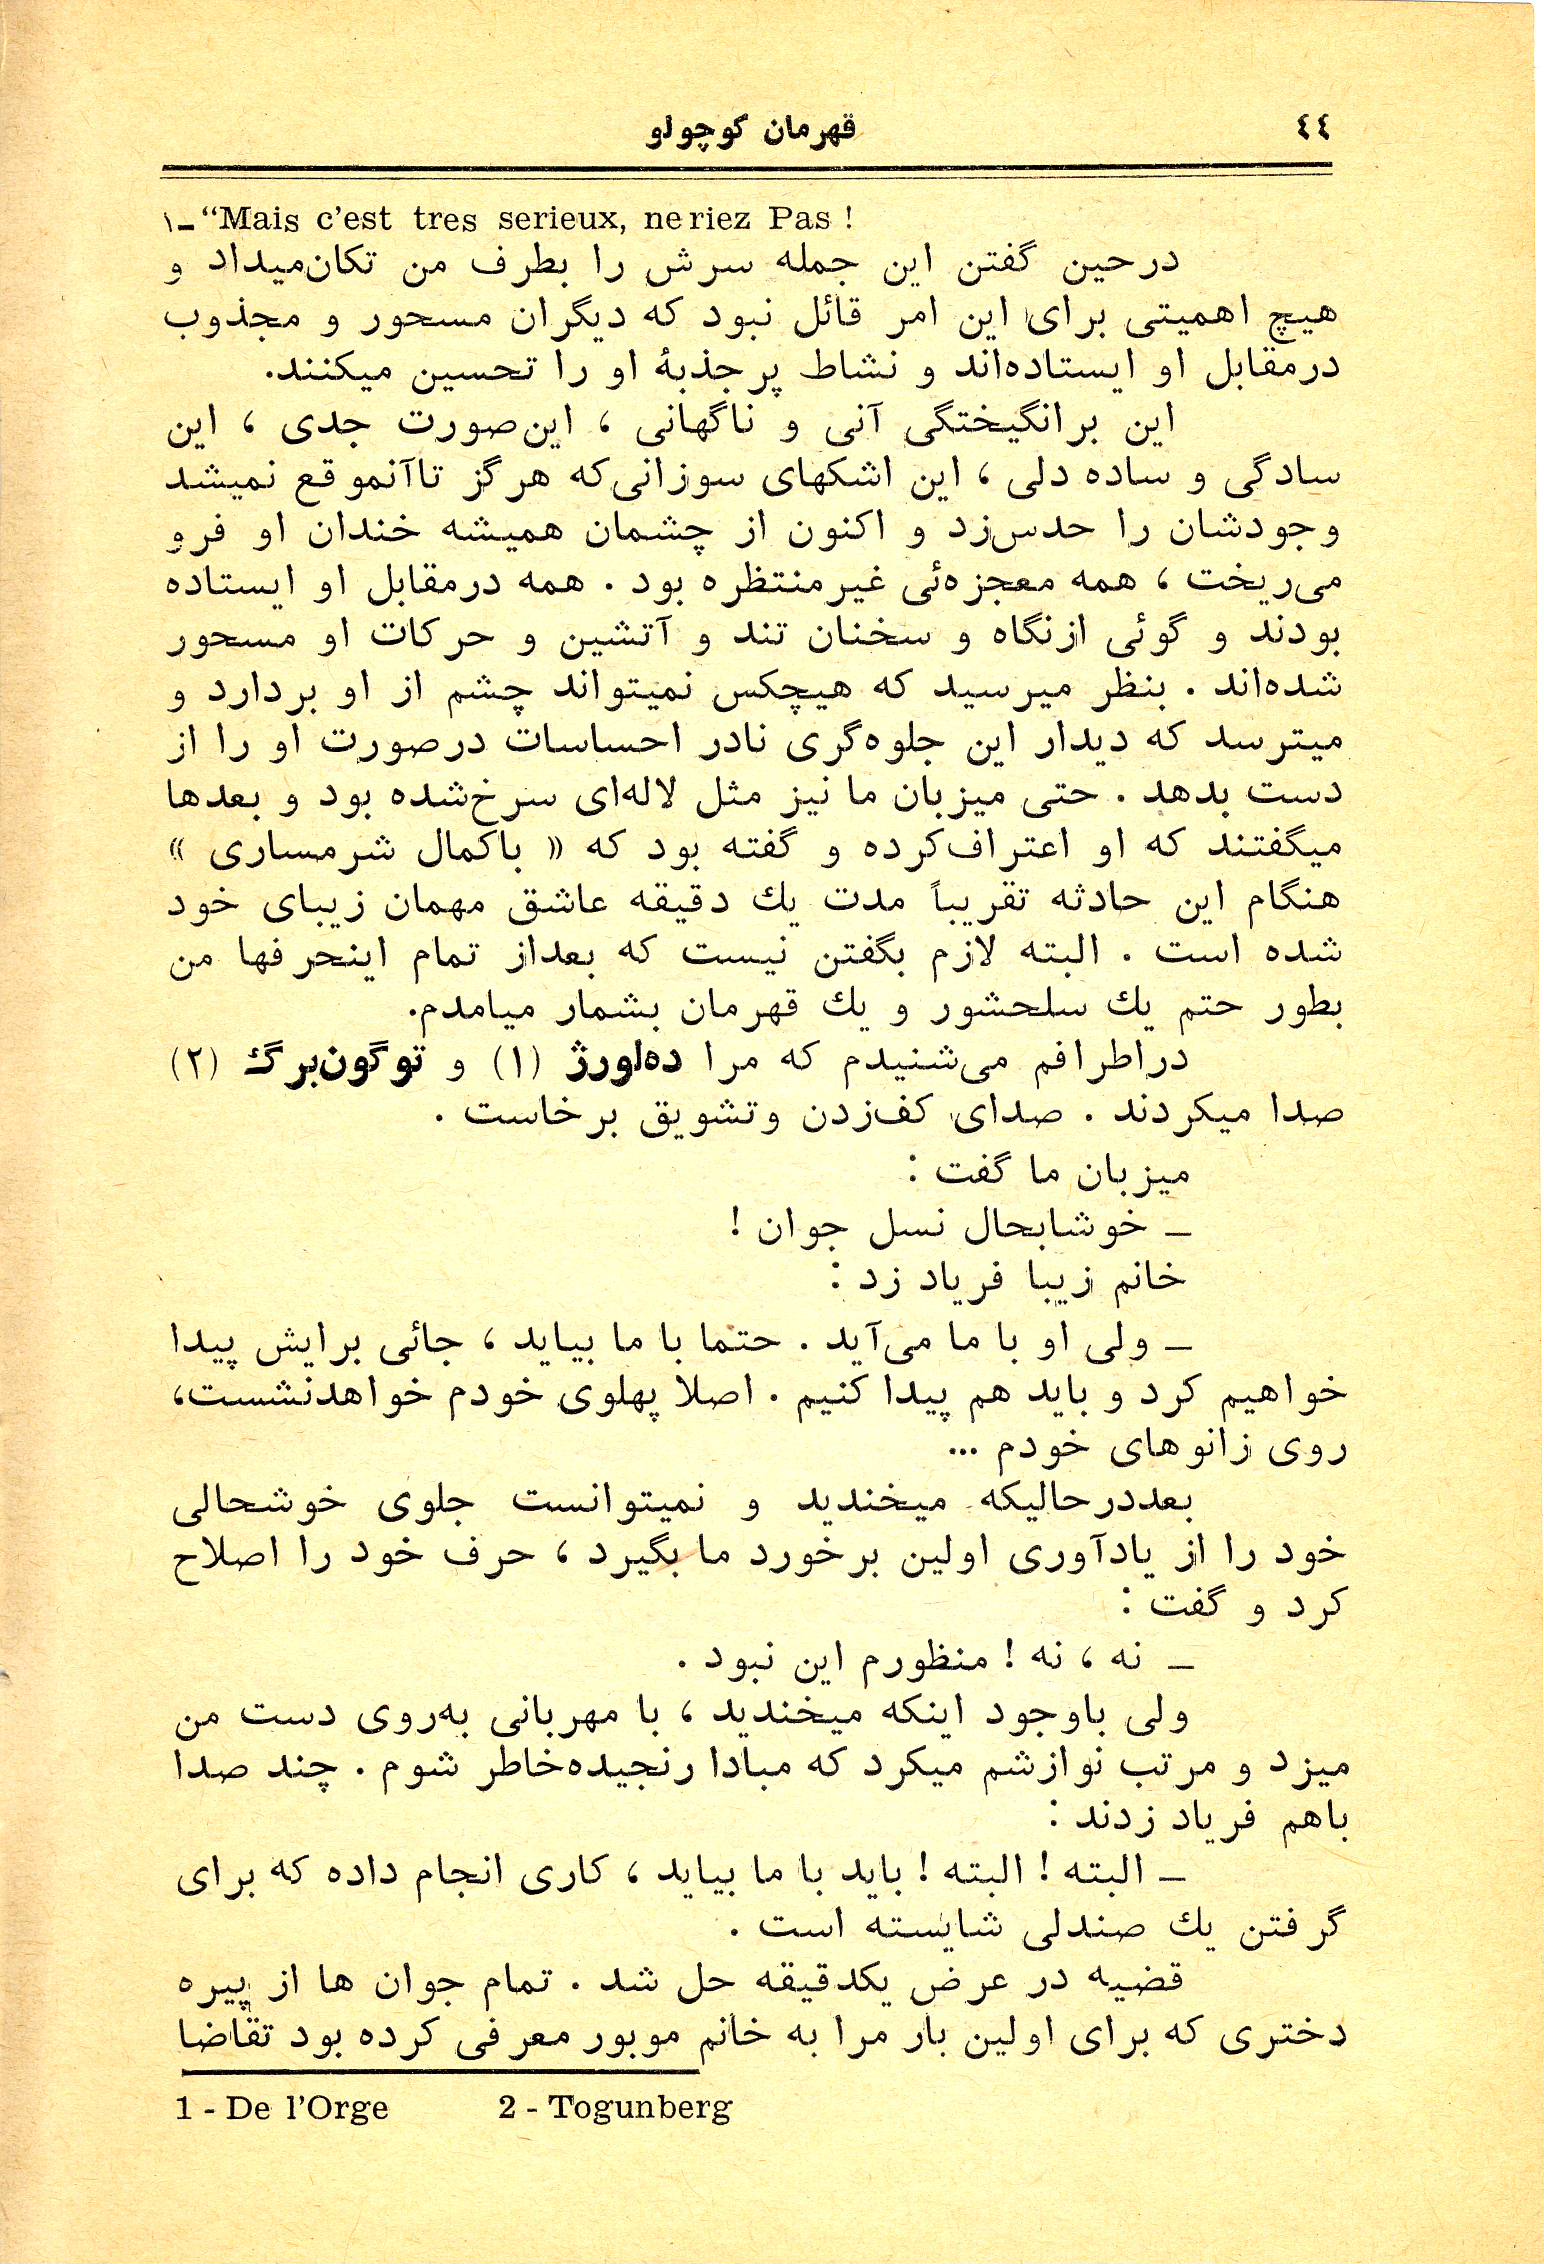 ٤٤
قهرمان کوچولو
۱ـ “Mais c’est tres serieux, ne riez Pas !
درحین گفتن این جمله سرش را بطرف من تکان‌میداد و
هیچ اهمیتی برای این امر قائل نبود که دیگران مسحور و مجذوب
درمقابل او ایستاده‌اند و نشاط پرجذبهٔ او را تحسین میکنند.
این برانگیختگی آنی و ناگهانی ، این‌صورت جدی ، این
سادگی و ساده دلی ، این اشکهای سوزانی‌که هرگز تاآنموقع نمیشد
وجودشان را حدس‌زد و اکنون از چشمان همیشه خندان او فرو
می‌ریخت ، همه معجزه‌ئی غیرمنتظره بود . همه درمقابل او ایستاده
بودند و گوئی ازنگاه و سخنان تند و آتشین و حرکات او مسحور
شده‌اند . بنظر میرسید که هیچکس نمیتواند چشم از او بردارد و
میترسد که دیدار این جلوه‌گری نادر احساسات درصورت او را از
دست بدهد . حتی میزبان ما نیز مثل لاله‌ای سرخ‌شده بود و بعدها
میگفتند که او اعتراف‌کرده و گفته بود که « باکمال شرمساری »
هنگام این حادثه تقریباً مدت یك دقیقه عاشق مهمان زیبای خود
شده است . البته لازم بگفتن نیست که بعداز تمام اینحرفها من
بطور حتم یك سلحشور و یك قهرمان بشمار میامدم.
دراطرافم می‌شنیدم که مرا ده‌لورژ (۱) و توگون‌برگ (۲)
صدا میکردند . صدای کف‌زدن وتشویق برخاست .
میزبان ما گفت :
ـ خوشابحال نسل جوان !
خانم زیبا فریاد زد :
ـ ولی او با ما می‌آید . حتما با ما بیاید ، جائی برایش پیدا
خواهیم کرد و باید هم پیدا کنیم . اصلا پهلوی خودم خواهدنشست،
روی زانوهای خودم ...
بعددرحالیکه میخندید و نمیتوانست جلوی خوشحالی
خود را از یادآوری اولین برخورد ما بگیرد ، حرف خود را اصلاح
کرد و گفت :
ـ نه ، نه ! منظورم این نبود .
ولی باوجود اینکه میخندید ، با مهربانی به‌روی دست من
میزد و مرتب نوازشم میکرد که مبادا رنجیده‌خاطر شوم . چند صدا
باهم فریاد زدند :
ـ البته ! البته ! باید با ما بیاید ، کاری انجام داده که برای
گرفتن یك صندلی شایسته است .
قضیه در عرض یکدقیقه حل شد . تمام جوان ها از پیره
دختری که برای اولین بار مرا به خانم موبور معرفی کرده بود تقاضا
1 - De l’Orge 2 - Togunberg